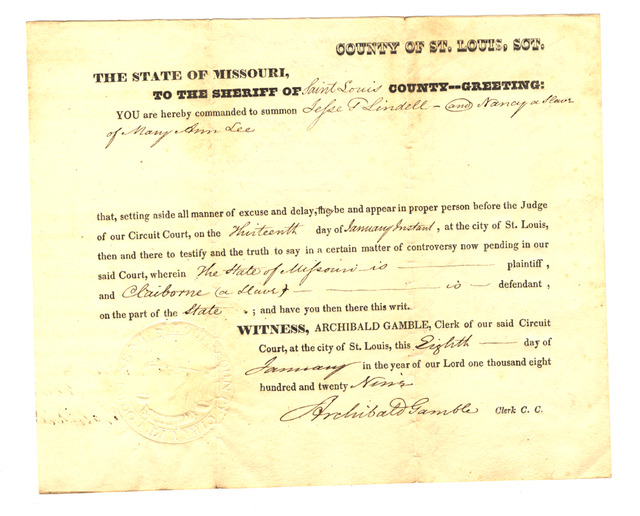 COUNTY OF ST. LOUIS, SCT.
THE STATE OF MISSOURI,
TO THE SHERIFF OF Saint Louis COUNTY--GREETING:
YOU are hereby commanded to summon Jesse T Lindell - and Nancy a slave
of Mary Ann Lee
that, setting aside all manner of excuse and delay, they be and appear in proper person before the Judge
of our Circuit Court, on the Thirteenth day of January Instant, at the city of St. Louis,
then and there to testify and the truth to say in a certain matter of controversy now pending in our
said Court, wherein The State of Missouri is plaintiff,
and Claiborne (a slave) is defendant,
on the part of the State ; and have you then there this writ.
WITNESS, ARCHIBALD GAMBLE, Clerk of our said Circuit
Court, at the city of St. Louis, this Eighth day of
January in the year of our Lord one thousand eight
hundred and twenty Nine
Archibald Gamble Clerk C. C.